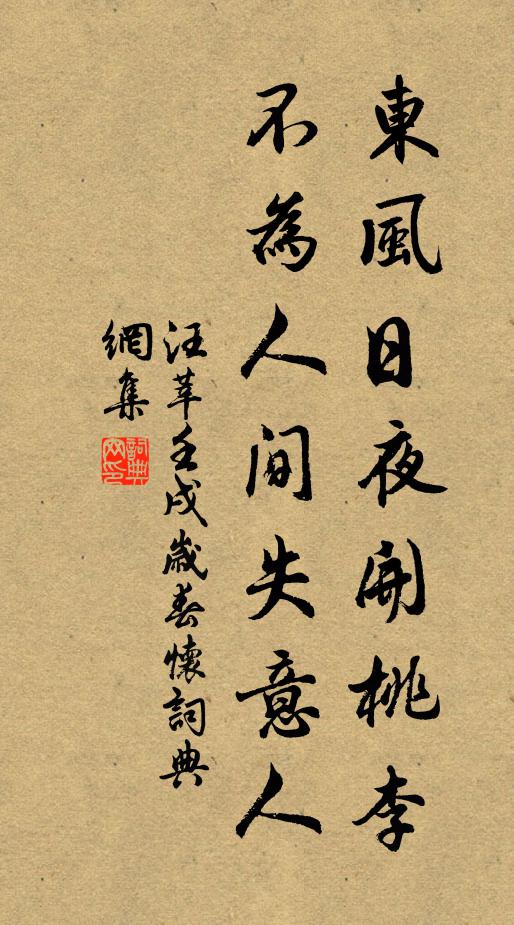 東風日夜開桃李
不為人間失意人
汪莘壬戌歲春懷詞典
網集
詞典
网印